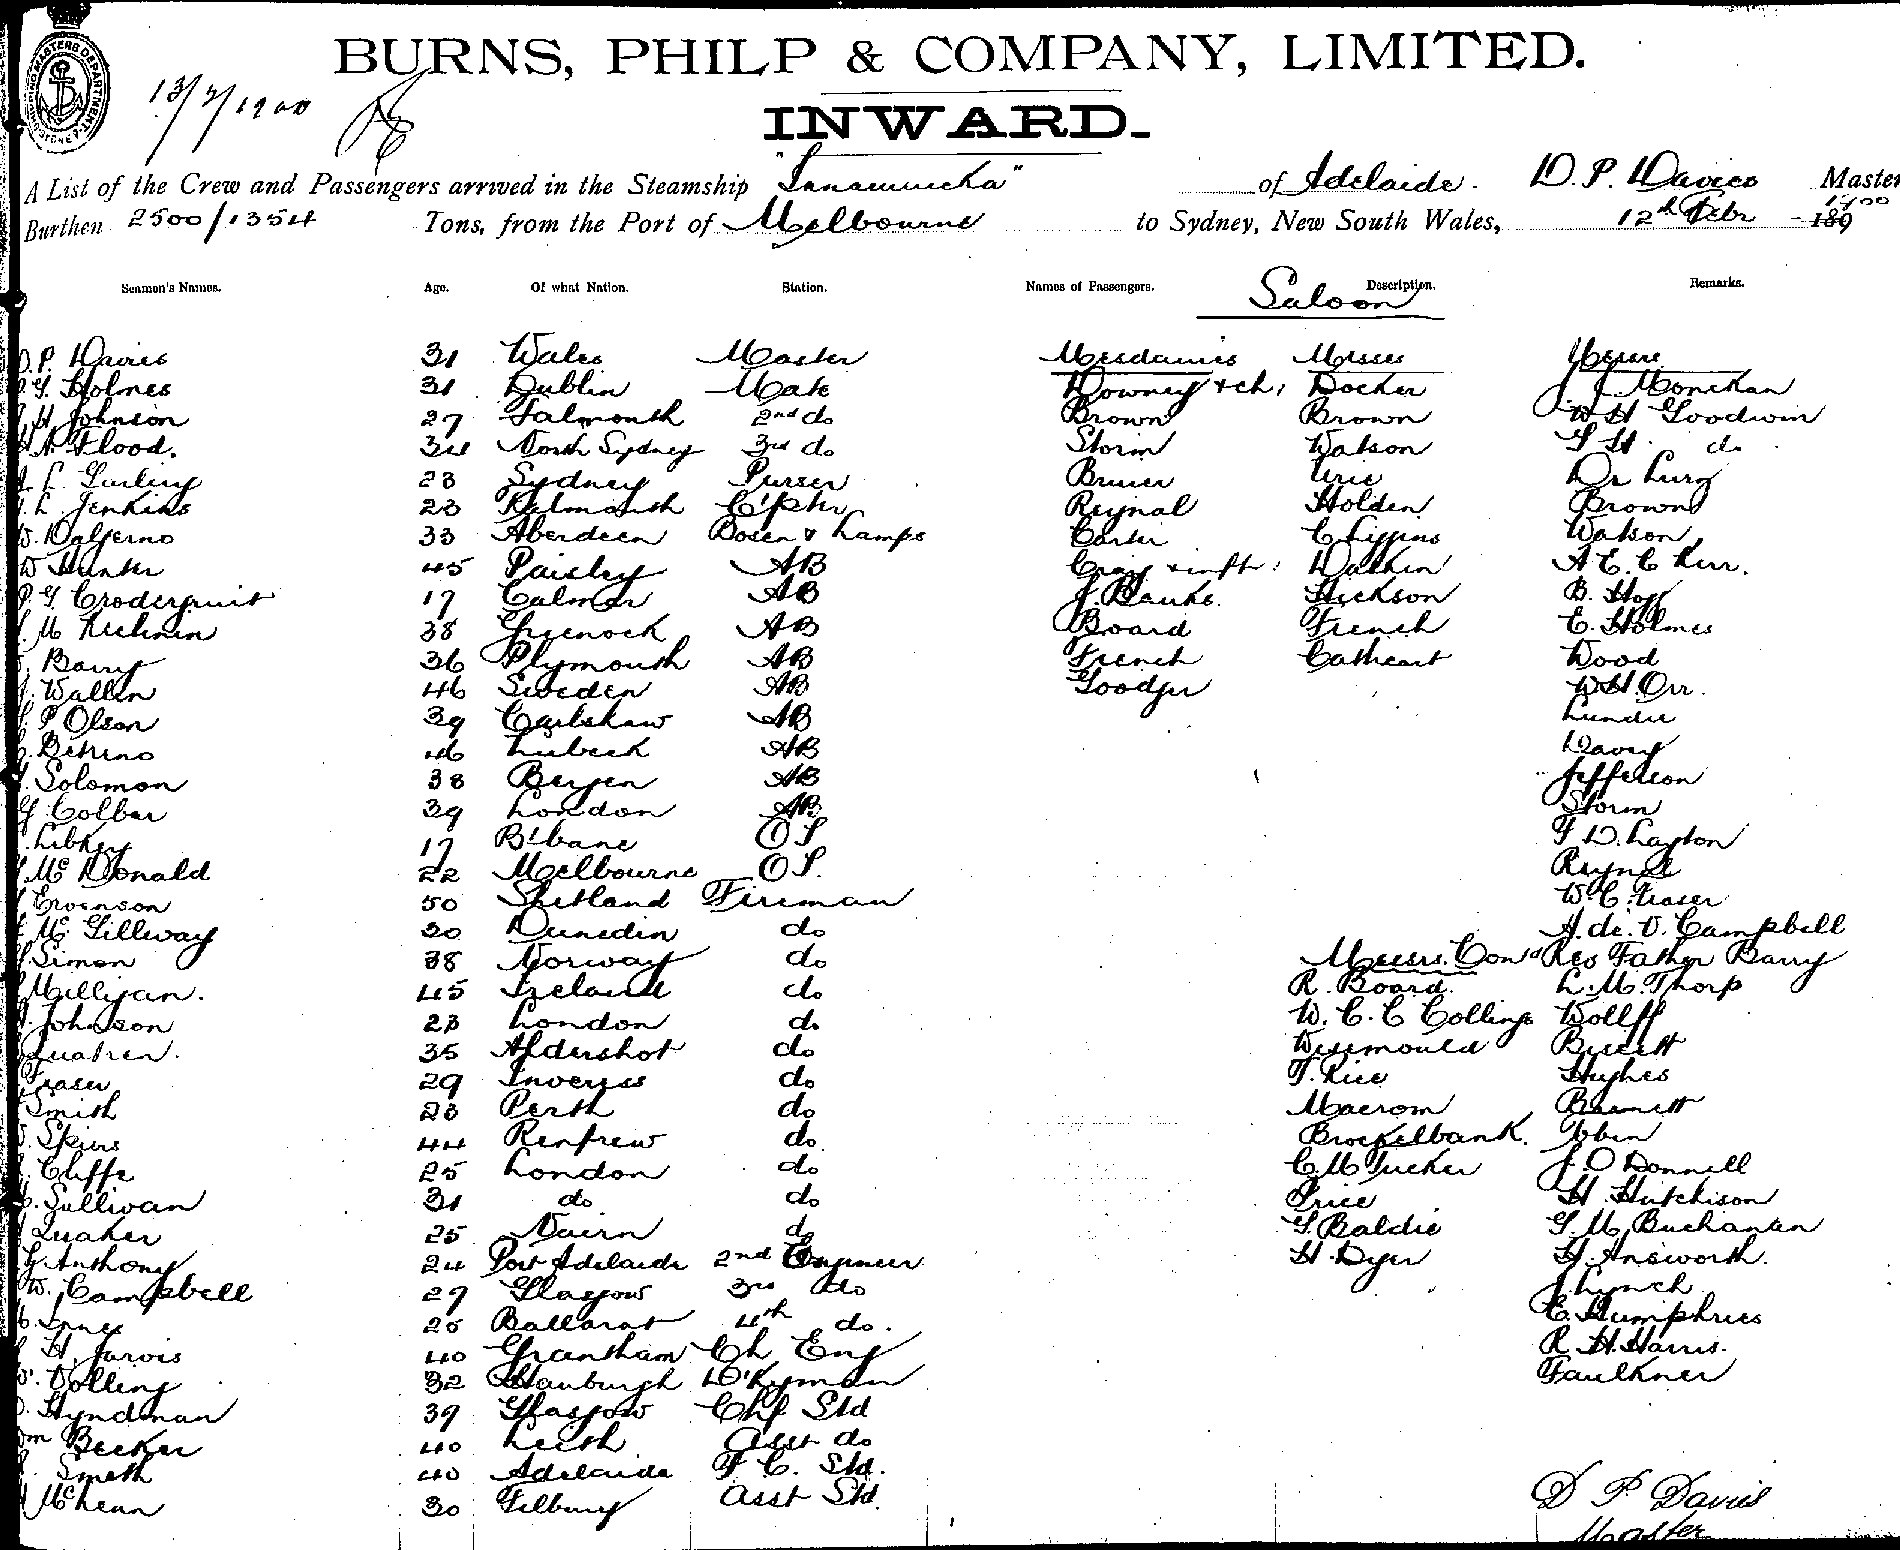 BURNS, PHILP & COMPANY, LIMITED.
13/2/1900
INWARD.
A List of the Crew and Passengers arrived in the Steamship "Innamincka" of Adelaide. D. P. Davies Master
Burthen 2500/1354 Tons, from the Port of Melbourne to Sydney, New South Wales, 12th Feby 1900
Seamen's Names. Age. Of what Nation. Station. Names of Passengers. Description. Remarks.
Saloon
D. P. Davies 31 Wales Master Mesdames Misses Messrs
G. Holmes 31 Dublin Mate Downey & ch; Docker J. Monekan
H Johnson 27 Falmouth 2nd do Brown Brown W H Goodwin
A. Flood. 34 North Sydney 3rd do Storm Watson G H do
L. Garling 23 Sydney Purser Bruer Urie Dr Lurg
L Jenkins 23 C'pntr Reynal Holden Brown
W. Dalgerno 33 Aberdeen Bosen & Lamps Carter C Liggins Watson
W Hunter 45 Paisley AB Craig & inft: Watkin A E. C Kerr.
P G 17 Calmar AB J. Banks. Hickson B. Hoff
M 38 Greenock AB Board French E. Holmes
Barry 36 Plymouth AB French Cathcart Wood
Wallin 46 Sweden AB Goodger W H. Orr.
P Olsen 39 Carlshaw AB Lundie
Behrno 46 Lubeck AB Davey
Solomon 38 Bergen AB Jefferson
Colber 39 London AB Storm
17 B'bane O S F D. Layton
McDonald 22 Melbourne O S. Reynal
50 Shetland Fireman W. C. Fraser
McGillway 30 Dunedin do A. de. V. Campbell
Simon 38 Norway do Messrs. Cond Rev Father Barry
Milligan. 45 Ireland do R. Board. L. M. Thorp
Johnson 23 London do W. C. C Collings Wollff
35 Aldershot do Bissett
Fraser 29 Inveress do T. Rice Hughes
Smith 23 Perth do Macrom Barnett
Speirs 44 Renfrew do. Brockelbank. Tobin
Cliffe 25 London do C. M Tucker J. O Donnell
Sullivan 31 do do Price H. Hutchison
Quaker 25 Nairn do G. Baldie G. M. Buchanan
G Anthony 24 Port Adelaide 2nd Engineer H. Dyer H. Answorth.
W. Campbell 27 Glasgow 3rd do J Lynch
25 Ballarat 4th do. E. Humphries
H. Jarvis 40 Grantham Ch Eng R. H. Harris.
Colling 32 Hamburgh D'kyman Faulkner
Hyndman 39 Glasgow Chf Std
Becker 40 Leith Asst do
Smith 40 Adelaide F. C. Std.
30 Tilbury Asst Std.
D P Davies
Master